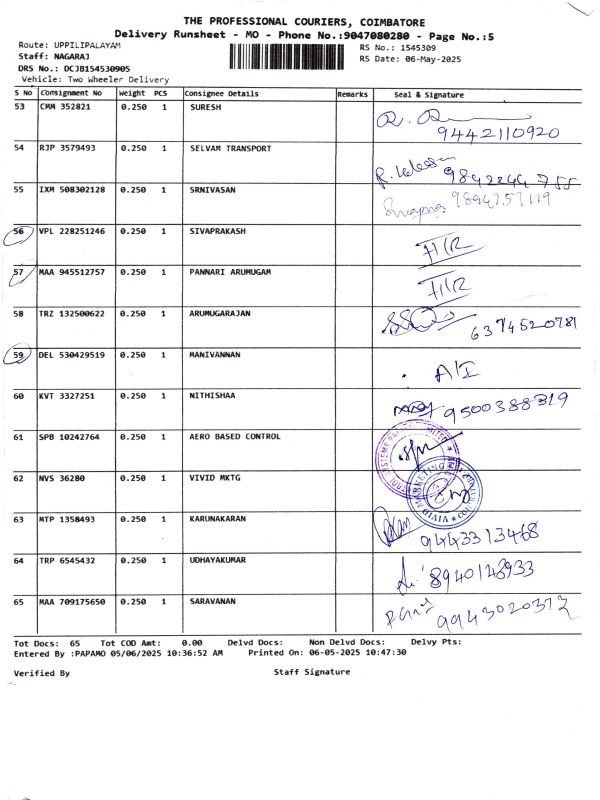 THE PROFESSIONAL COURIERS, COIMBATORE
Delivery Runsheet - MO - Phone No.:9047080280 - Page No.:5
Route: UPPILIPALAYAM
Staff: NAGARAJ
DRS No.: DCJB154530905
Vehicle: Two Wheeler Delivery
RS No.: 1545309
RS Date: 06-May-2025
S No Consignment No Weight PCS Consignee Details Remarks Seal & Signature
53 CMM 352821 0.250 1 SURESH
9442110920
54 RJP 3579493 0.250 1 SELVAM TRANSPORT
9842244755
55 IXM 508302128 0.250 1 SRNIVASAN
9894257119
56 VPL 228251246 0.250 1 SIVAPRAKASH
57 MAA 945512757 0.250 1 PANNARI ARUMUGAM
58 TRZ 132500622 0.250 1 ARUMUGARAJAN
6374520781
59 DEL 530429519 0.250 1 MANIVANNAN
A/I
60 KVT 3327251 0.250 1 NITHISHAA
9500388319
61 SPB 10242764 0.250 1 AERO BASED CONTROL
62 NVS 36280 0.250 1 VIVID MKTG
VIVID MARKETING
63 MTP 1358493 0.250 1 KARUNAKARAN
9443313468
64 TRP 6545432 0.250 1 UDHAYAKUMAR
8940148933
65 MAA 709175650 0.250 1 SARAVANAN
Tot Docs: 65 Tot COD Amt: 0.00 Delvd Docs: Non Delvd Docs: Delvy Pts:
Entered By :PAPAMO 05/06/2025 10:36:52 AM Printed On: 06-05-2025 10:47:30
Verified By Staff Signature